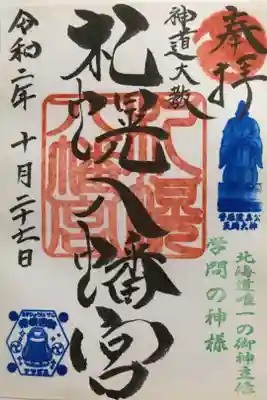 奉拝
神道大教
札幌八幡宮
令和二年 十月二十七日
菅原道真公
天満大神
北海道唯一の御神立像
学問の神様
札幌
八幡宮